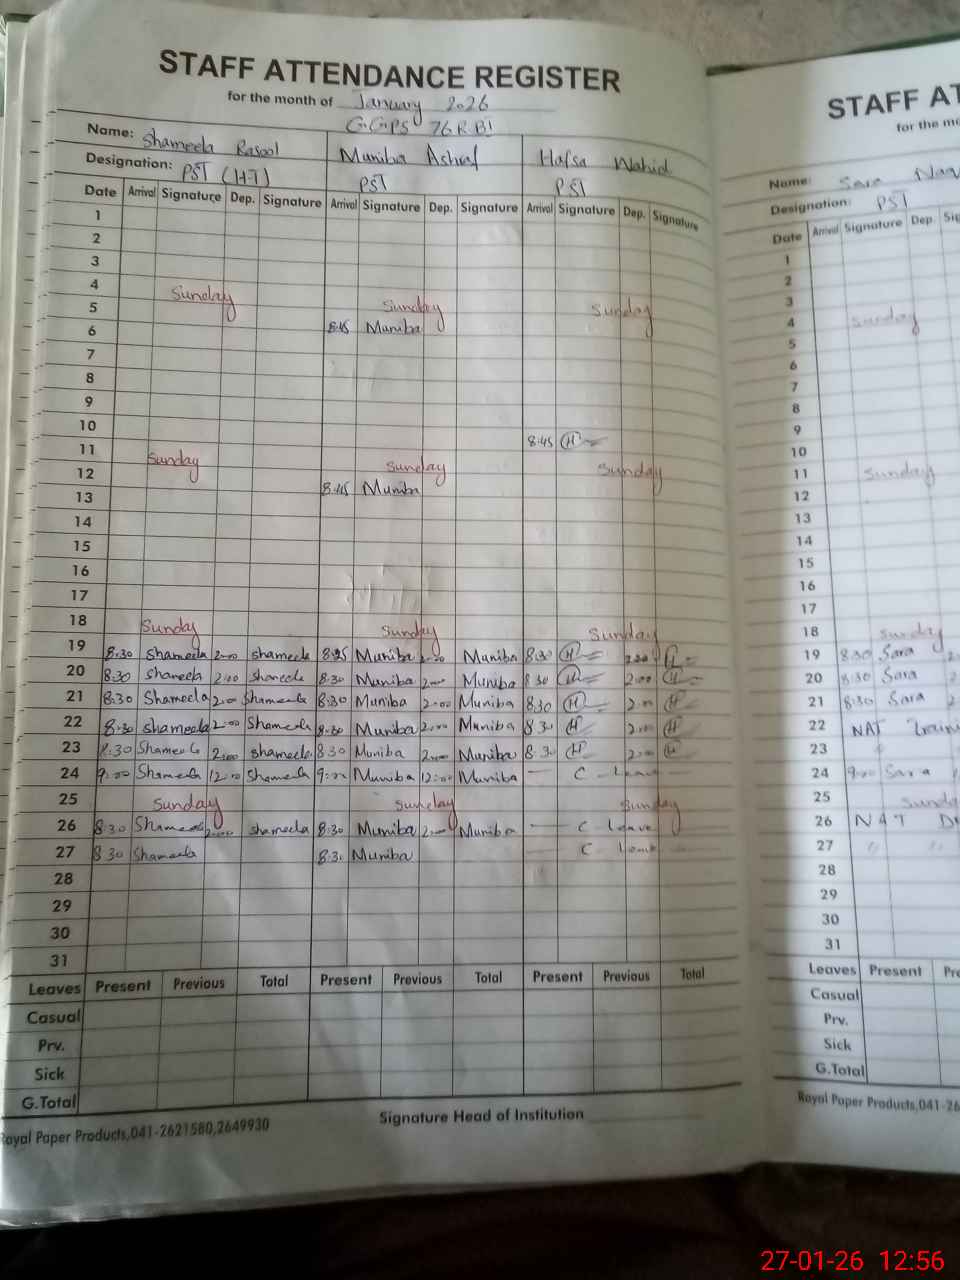 STAFF ATTENDANCE REGISTER
for the month of January 2026
G.G.P.S 76 R.B I
Name: Shameela Rasool Muniba Ashraf Hafsa Wahid
Designation: PST (H.T) PST PST
Date Arrival Signature Dep. Signature Arrival Signature Dep. Signature Arrival Signature Dep. Signature
1
2
3
4 Sunday Sunday Sunday
5
6 8:45 Muniba
7
8
9
10 8:45 H
11 Sunday Sunday Sunday
12
13 8:45 Muniba
14
15
16
17
18 Sunday Sunday Sunday
19 8:30 Shameela 2:00 shameela Muniba Muniba 8:30 H 2:00 H
20 8:30 shameela 2:00 shameela 8:30 Muniba 2:00 Muniba 8:30 H 2:00 H
21 8:30 Shameela 2:00 Shameela 8:30 Muniba 2:00 Muniba 8:30 H 2:00 H
22 8:30 shameela 2:00 Shameela 8:30 Muniba 2:00 Muniba 8:30 H 2:00 H
23 8:30 Shameela 2:00 shameela 8:30 Muniba 2:00 Muniba 8:30 H 2:00 H
24 9:00 Shameela 12:00 Shameela 9:00 Muniba 12:00 Muniba — C - Leave
25 Sunday Sunday Sunday
26 8:30 Shameela 2:00 shameela 8:30 Muniba 2:00 Muniba — C leave
27 8:30 Shameela 8:30 Muniba — C leave
28
29
30
31
Leaves Present Previous Total Present Previous Total Present Previous Total
Casual
Prv.
Sick
G.Total
Royal Paper Products,041-2621580,2649930
Signature Head of Institution
STAFF AT
for the mo
Name: Sara
Designation: PST
Date Arrival Signature Dep. Sig
1
2
3
4 Sunday
5
6
7
8
9
10
11 Sunday
12
13
14
15
16
17
18 Sunday
19 8:30 Sara
20 8:30 Sara
21 8:30 Sara
22 NAT
23
24 9:00 Sara
25 Sunday
26 NAT
27 " "
28
29
30
31
Leaves Present Pre
Casual
Prv.
Sick
G.Total
Royal Paper Products,041-26
27-01-26 12:56